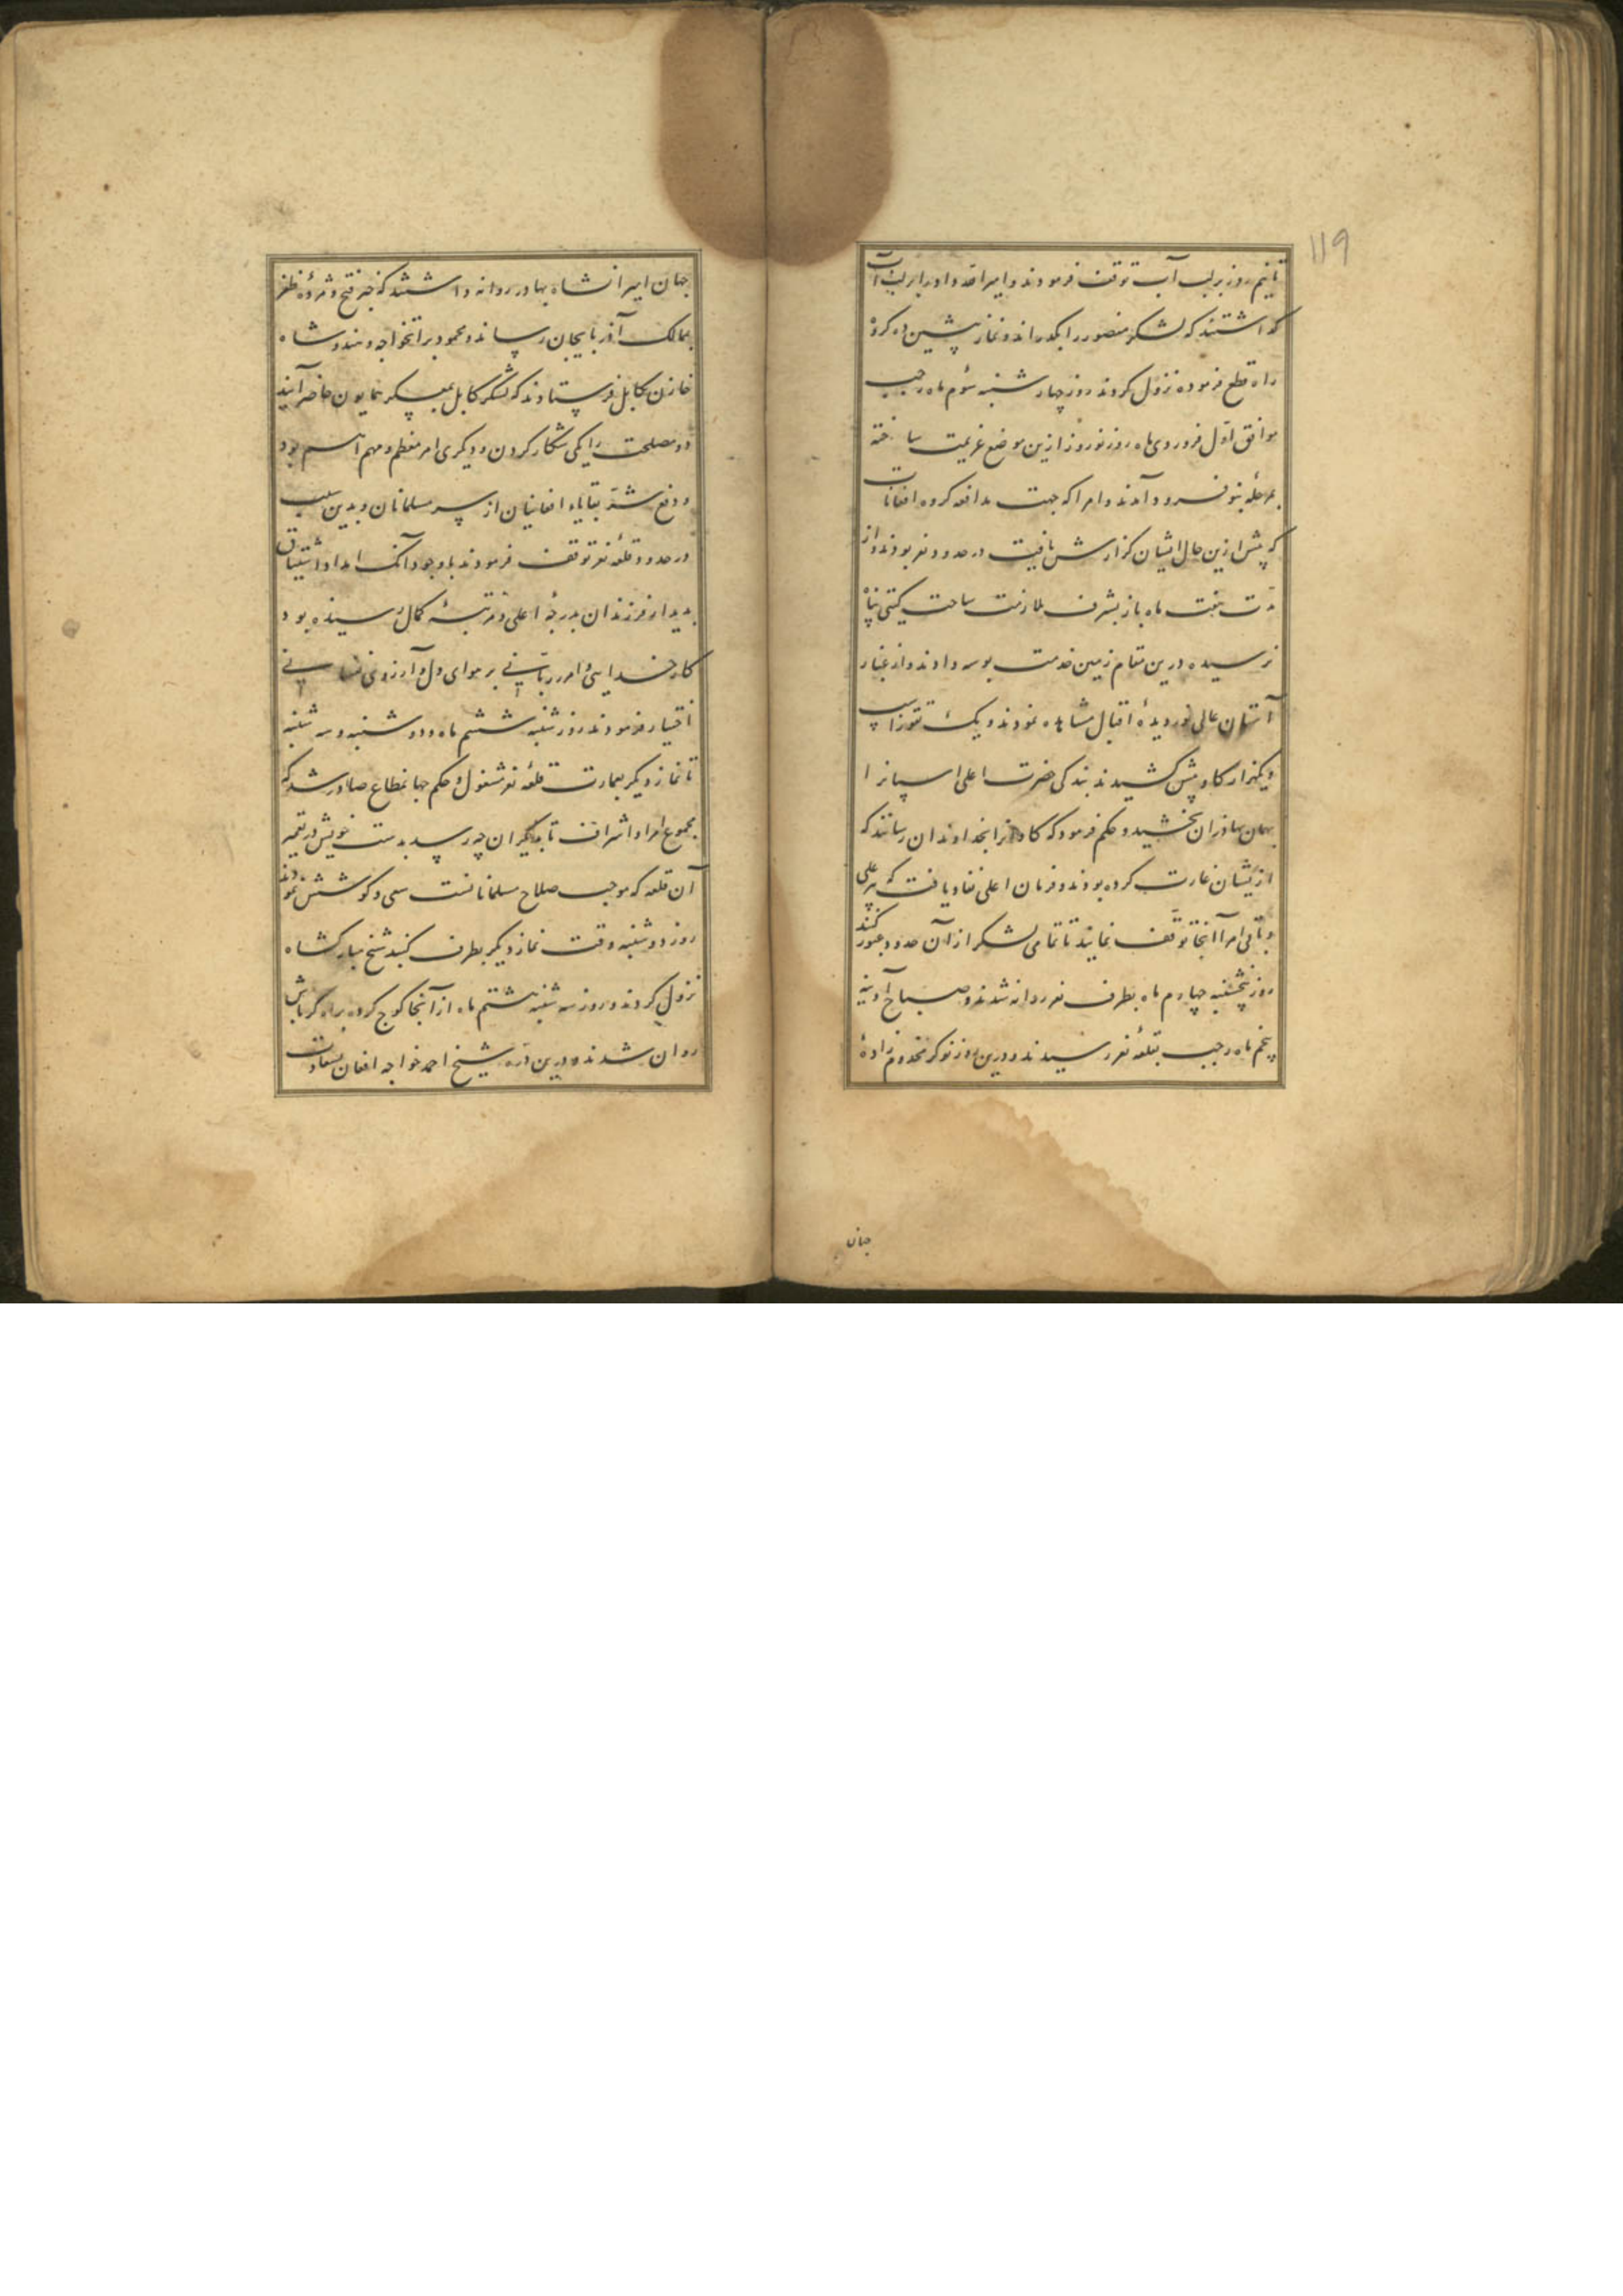 119
تا نیم روز بر لب آب توقف فرمودند و امیر الله داد را بر لب آب
گذاشتند که لشکر منصور را بگذراند و نماز پیشین ده کروه
راه قطع فرموده نزول کردند روز چهارشنبه سوم ماه رجب
موافق اول فروردی ماه روز نوروز ازین موضع عزیمت ساخته
بمرحله بنو فرود آمدند و امرا که جهت مدافعه کروه افغانان
که پیش ازین حال ایشان گزارش یافت در حدود نغر بودند و از
مدت هفت ماه باز بشرف ملازمت ساحت گیتی پناه
نرسیده درین مقام زمین خدمت بوسه دادند و از غبار
آستان عالی نور دیدهٔ اقبال مشاهده نمودند و یک تقوز اسپ
و یکهزار کاو پیش کشیدند بندکی حضرت اعلی اسپانرا
بهمان بهادران بخشید و حکم فرمود که کاوانرا بخداوندان رسانند که
ازیشان غارت کرده بودند و فرمان اعلی نفاذ یافت که پیر علی
و باقی امرا آنجا توقف نمایند تا تمامی لشکر از آن حدود عبور کنند
روز پنجشنبه چهارم ماه بطرف نغر روانه شدند و صباح آدینه
پنجم ماه رجب بقلعهٔ نغر رسیدند و درین روز نوکر مخدوم زادهٔ
جهان
جهان امیرانشاه بهادر روانه داشتند که خبر فتح و مژدهٔ ظفر
بممالک آذربایجان رساند و محمود براتخواجه و هندو شاه
خازن بکابل فرستادند که لشکر کابل بمعسکر همایون حاضر آیند
دو مصلحت را یکی شکار کردن و دیکری امر معظم و مهم اتم بود
و دفع شر بقایاء افغانیان از سر مسلمانان و بدین سبب
در حدود قلعهٔ نغر توقف فرمودند باوجود آنک امداد اشتیاق
بدیدار فرزندان بدرجهٔ اعلی و مرتبهٔ کمال رسیده بود
کار خدایی و امر ربانی بر هوای دل و آرزوی نفسانی
اختیار فرمودند روز شنبه ششم ماه و دوشنبه و سه شنبه
تا نماز دیکر بعمارت قلعهٔ نغر مشغول و حکم جهانمطاع صادر شد که
مجموع امرا و اشراف تا بدیگران چه رسد بدست خویش در تعمیر
آن قلعه که موجب صلاح مسلمانانست سعی و کوشش نمودند
روز دوشنبه وقت نماز دیکر بطرف کنبد شیخ مبارکشاه
نزول کردند و روز سه شنبه هشتم ماه از آنجا کوچ کرده براه کرباش
روان شدند و درین دره شیخ احمد خواجه افغان بسعادت